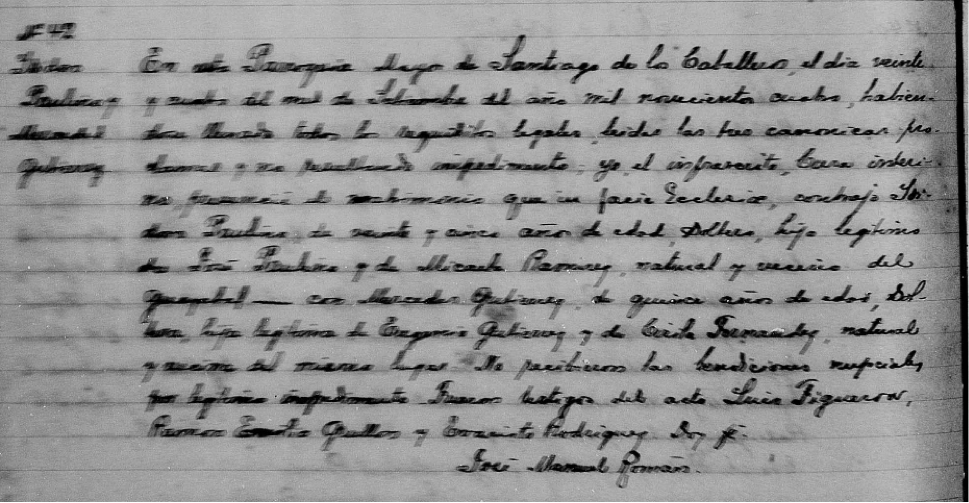 Nº 42
Isidro
Paulino y
Mercedes
Gutierrez
En esta Parroquia Mayor de Santiago de los Caballeros, el dia veinte
y cuatro del mes de del año mil novecientos cuatro, habien-
dose llenado todos los requisitos legales, leidas las tres canonicas pro-
clamas y no resultando impedimento, yo, el infrascrito, Cura interi-
no, presencié el matrimonio que in facie Ecclesiæ, contrajo Isi-
dro Paulino, de veinte y cinco años de edad, soltero, hijo legitimo
de José Paulino y de Micaela Ramirez, natural y vecino del
Guayabal — con Mercedes Gutierrez, de quince años de edad, sol-
tera, hija legitima de Eugenio Gutierrez y de Fernandez, natural
y vecina del mismo lugar. No recibieron las bendiciones nupciales
por legitimo impedimento. Fueron testigos del acto Luis Figueroa,
Ramon y Rodriguez. Doy fé.
José Manuel Román.